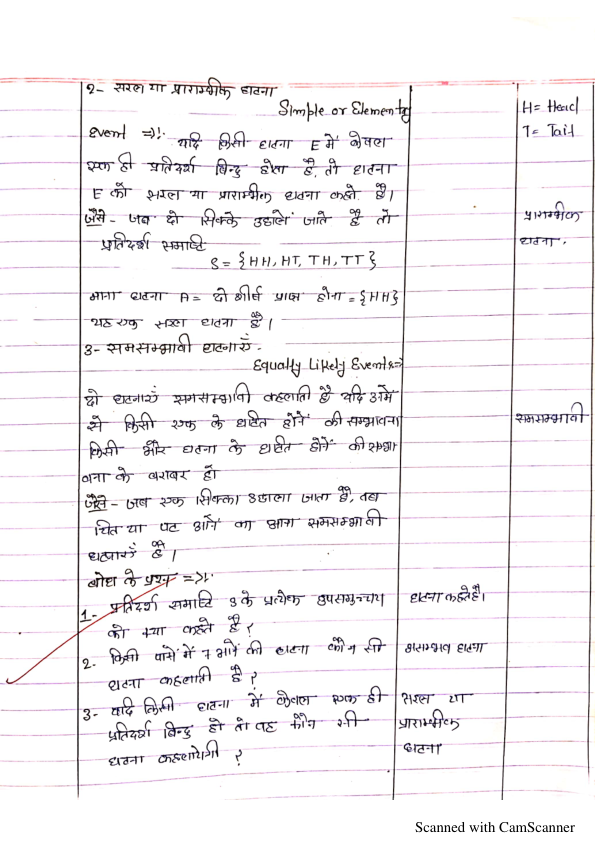 2- सरल या प्रारम्भीक घटना
Simple or Elementry
Event ⇒!-
यदि किसी घटना E में केवल
एक ही प्रतिदर्श बिन्दु होता है, तो घटना
E को सरल या प्रारम्भीक घटना कहते है।
जैसे- जब दो सिक्के उछाले जाते है तो
प्रतिदर्श समाष्टि
S = {HH, HT, TH, TT}
माना घटना A = दो शीर्ष प्राप्त होना = {HH}
यह एक सरल घटना है।
3- समसम्भावी घटनाएँ -
Equally Likely Events⇒
दो घटनाएँ समसम्भावी कहलाती है यदि उनमें
से किसी एक के घटित होने की सम्भावना
किसी और घटना के घटित होने की सम्भा
वना के बराबर हो
जैसे- जब एक सिक्का उछाला जाता है, तब
चित या पट आने का आना समसम्भावी
घटनाएँ है।
बोध के प्रश्न =>!-
1- प्रतिदर्श समाष्टि S के प्रत्येक उपसमुच्चय
को क्या कहते है?
2. किसी पासे में 7 आने की घटना कौन सी
घटना कहलाती है?
3- यदि किसी घटना में केवल एक ही
प्रतिदर्श बिन्दु हो तो वह कौन सी
घटना कहलायेगी ?
घटना कहते है।
असम्भव घटना
सरल या
प्रारम्भीक
घटना
H = Head
T = Tail
प्रारम्भीक
घटना,
समसम्भावी
Scanned with CamScanner